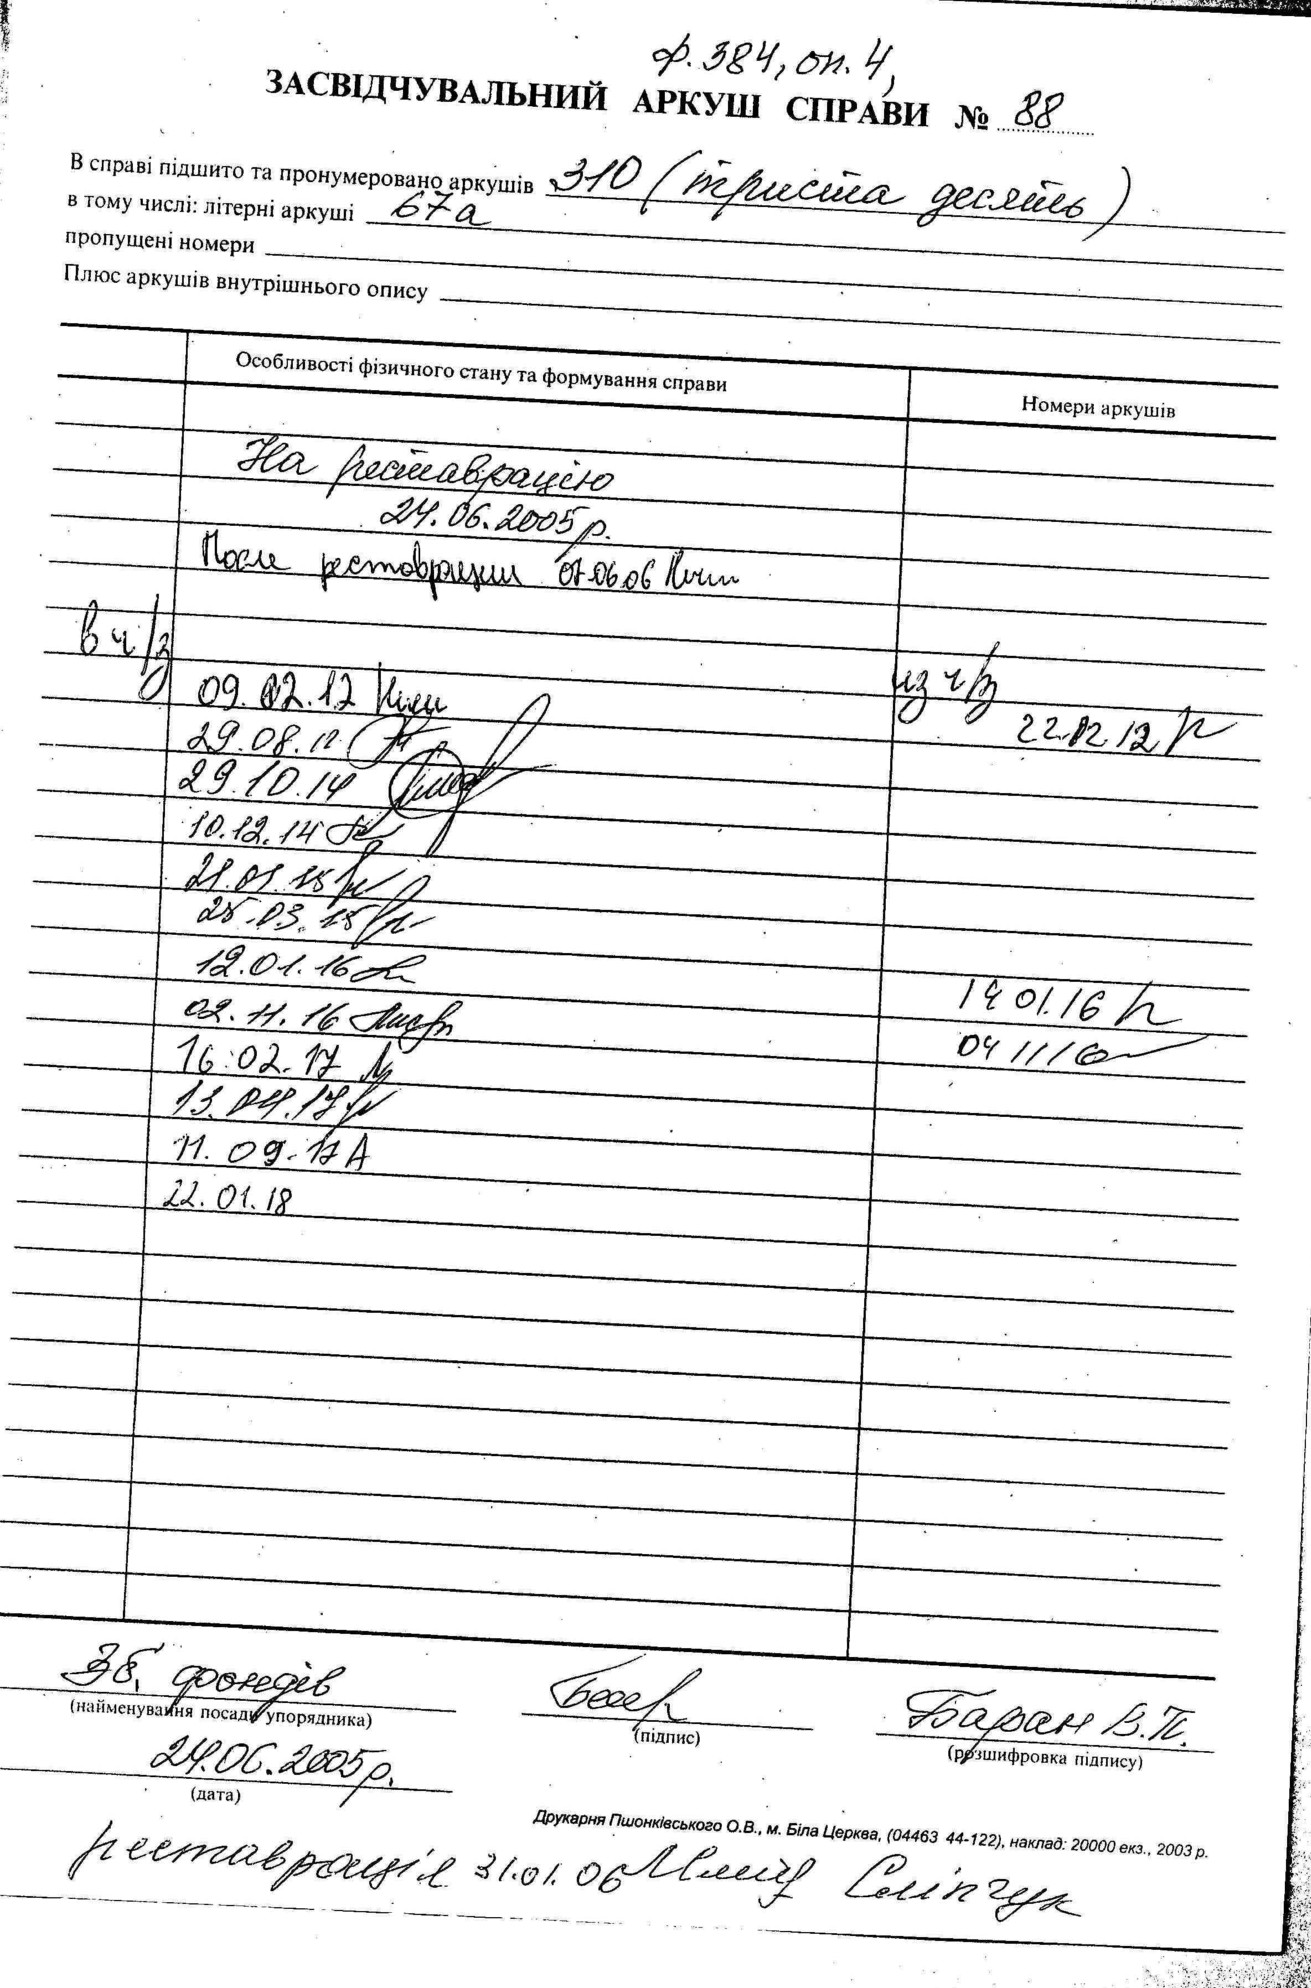 ф. 384, оп. 4,
ЗАСВІДЧУВАЛЬНИЙ АРКУШ СПРАВИ № 88
В справі підшито та пронумеровано аркушів 310 (триста десять)
в тому числі: літерні аркуші 67а
пропущені номери
Плюс аркушів внутрішнього опису
Особливості фізичного стану та формування справи Номери аркушів
На реставрацію
24.06.2005 р.
После реставрации 07.06.06
в ч/з из ч/з
09.02.12 22.02.12
29.08.12
29.10.14
10.12.14
21.01.15
25.03.15
12.01.16 14 01.16
02.11.16 04 11 16
16.02.17
13.04.17
11.09.17
22.01.18
Зб. фондів Баран В.П.
(найменування посади упорядника) (підпис) (розшифровка підпису)
24.06.2005 р.
(дата)
Друкарня Пшонківського О.В., м. Біла Церква, (04463 44-122), наклад: 20000 екз., 2003 р.
реставрація 31.01.06 Сліпчук